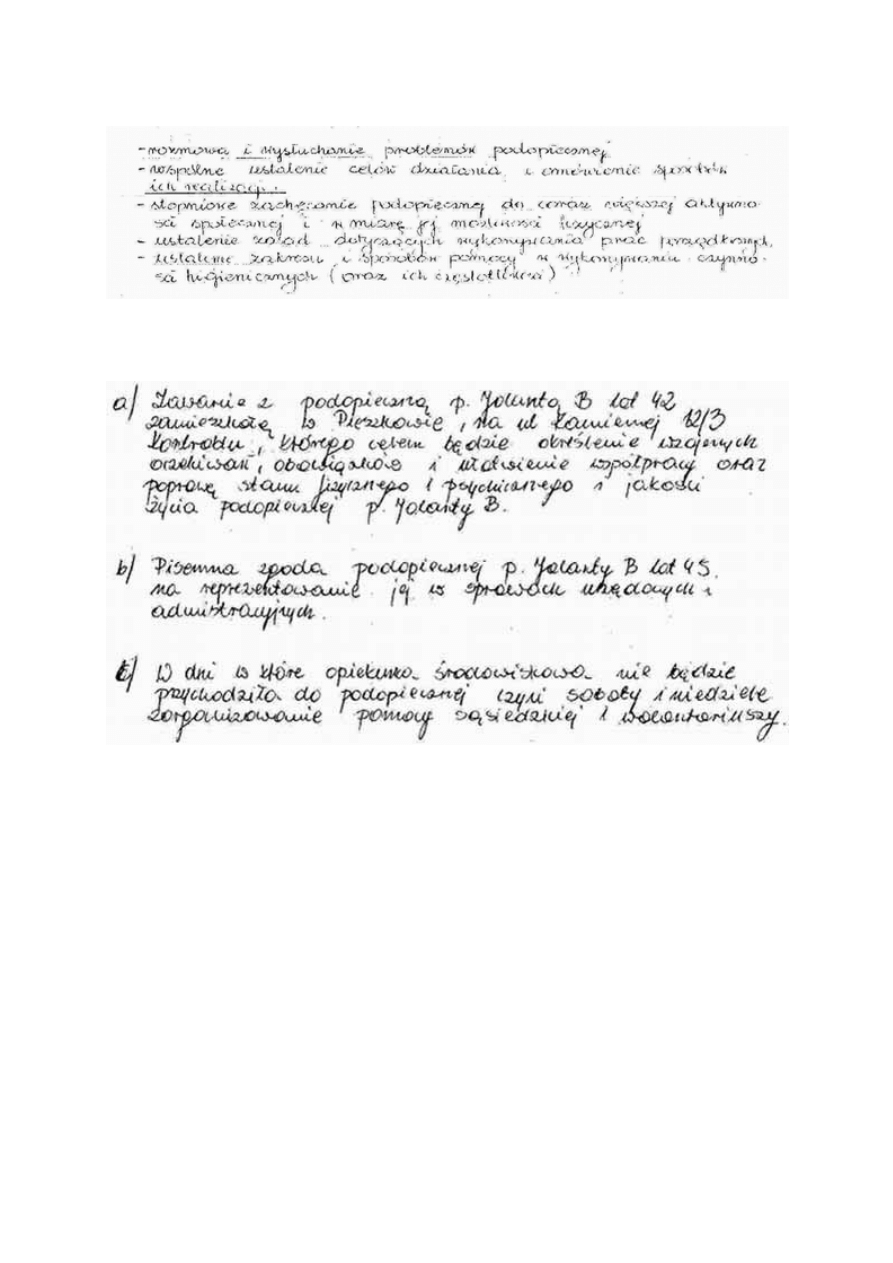 - rozmowa i wysłuchanie problemów podopiecznej
- wspólne ustalenie celów działania i omówienie sposobów
ich realizacji
- stopniowe zachęcanie podopiecznej do coraz większej aktywno-
ści społecznej i w miarę jej możliwości fizycznej
- ustalenie zasad dotyczących wykonywania prac porządkowych,
- ustalenie zakresu i sposobów pomocy w wykonywaniu czynno-
ści higienicznych (oraz ich częstotliwości)
a) Zawarie z podopieczną p. Jolantą B lat 42
zamieszkałą w Pieszkowie, na ul Kamiennej 12/3
Kontraktu, którego celem będzie określenie wzajemnych
oczekiwań, obowiązków i ułatwienie współpracy oraz
poprawę stanu fizycznego i psychicznego i jakości
życia podopiecznej p. Jolanty B.
b) Pisemna zgoda podopiecznej p. Jolanty B lat 45.
na reprezentowanie jej w sprawach urzędowych i
admistracyjnych.
c) W dni w które opiekunka środowiskowa nie będzie
przychodziła do podopiecznej czyli soboty i niedziele
zorganizowanie pomocy sąsiedzkiej i wolontariuszy.